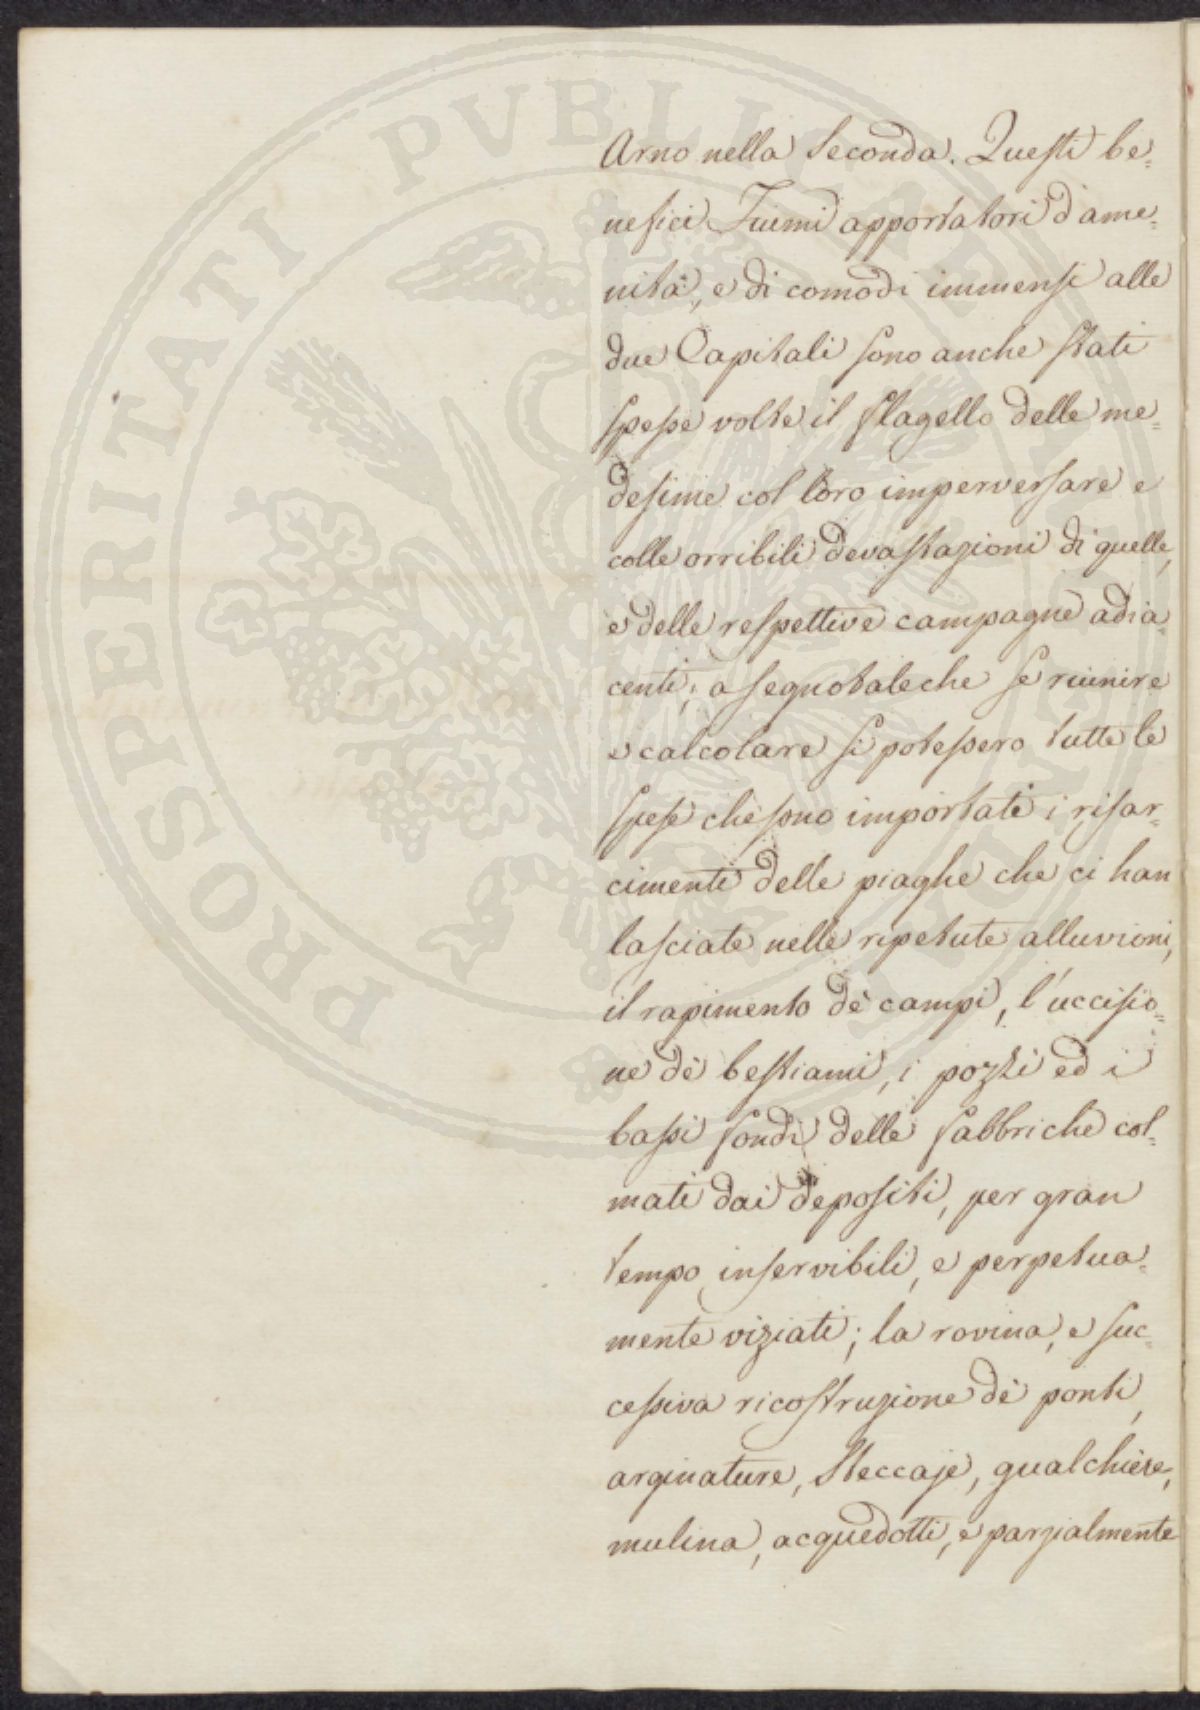 PROSPERITATI PUBLICAE AUGENDAE
Arno nella Seconda. Questi be=
nefici Fiumi apportatori d'ame=
nità, e di comodi immensi alle
due Capitali sono anche stati
spesse volte il flagello delle me=
desime col loro imperversare e
colle orribili devastazioni di quelle,
e delle respettive campagne adia=
centi; a segno tale che se riunire
e calcolare si potessero tutte le
spese che sono importati i risar=
cimenti delle piaghe che ci han
lasciate nelle ripetute alluvioni,
il rapimento de' campi, l'uccisio=
ne de' bestiami, i pozzi ed i
bassi fondi delle fabbriche col=
mati dai depositi, per gran
tempo inservibili, e perpetua=
mente viziati; la rovina, e suc=
cessiva ricostruzione de' ponti,
arginature, Steccaje, gualchiere,
mulina, acquedotti, e parzialmente